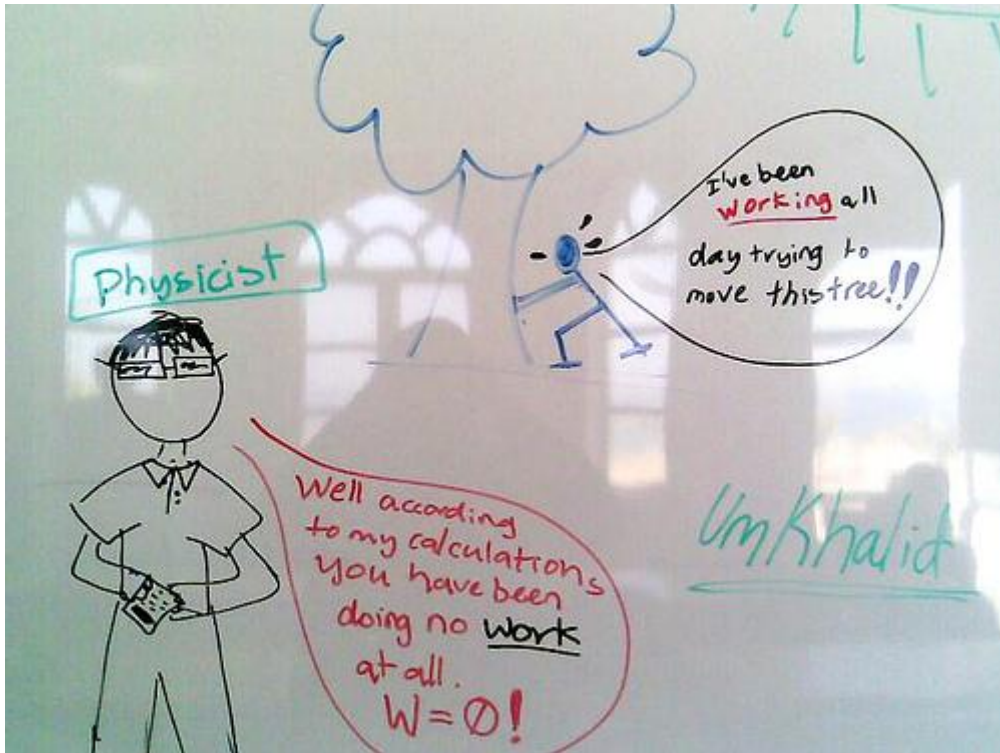 Physicist
I've been
working all
day trying to
move this tree!!
Well according
to my calculations
you have been
doing no work
at all.
W = 0!
UmKhalid